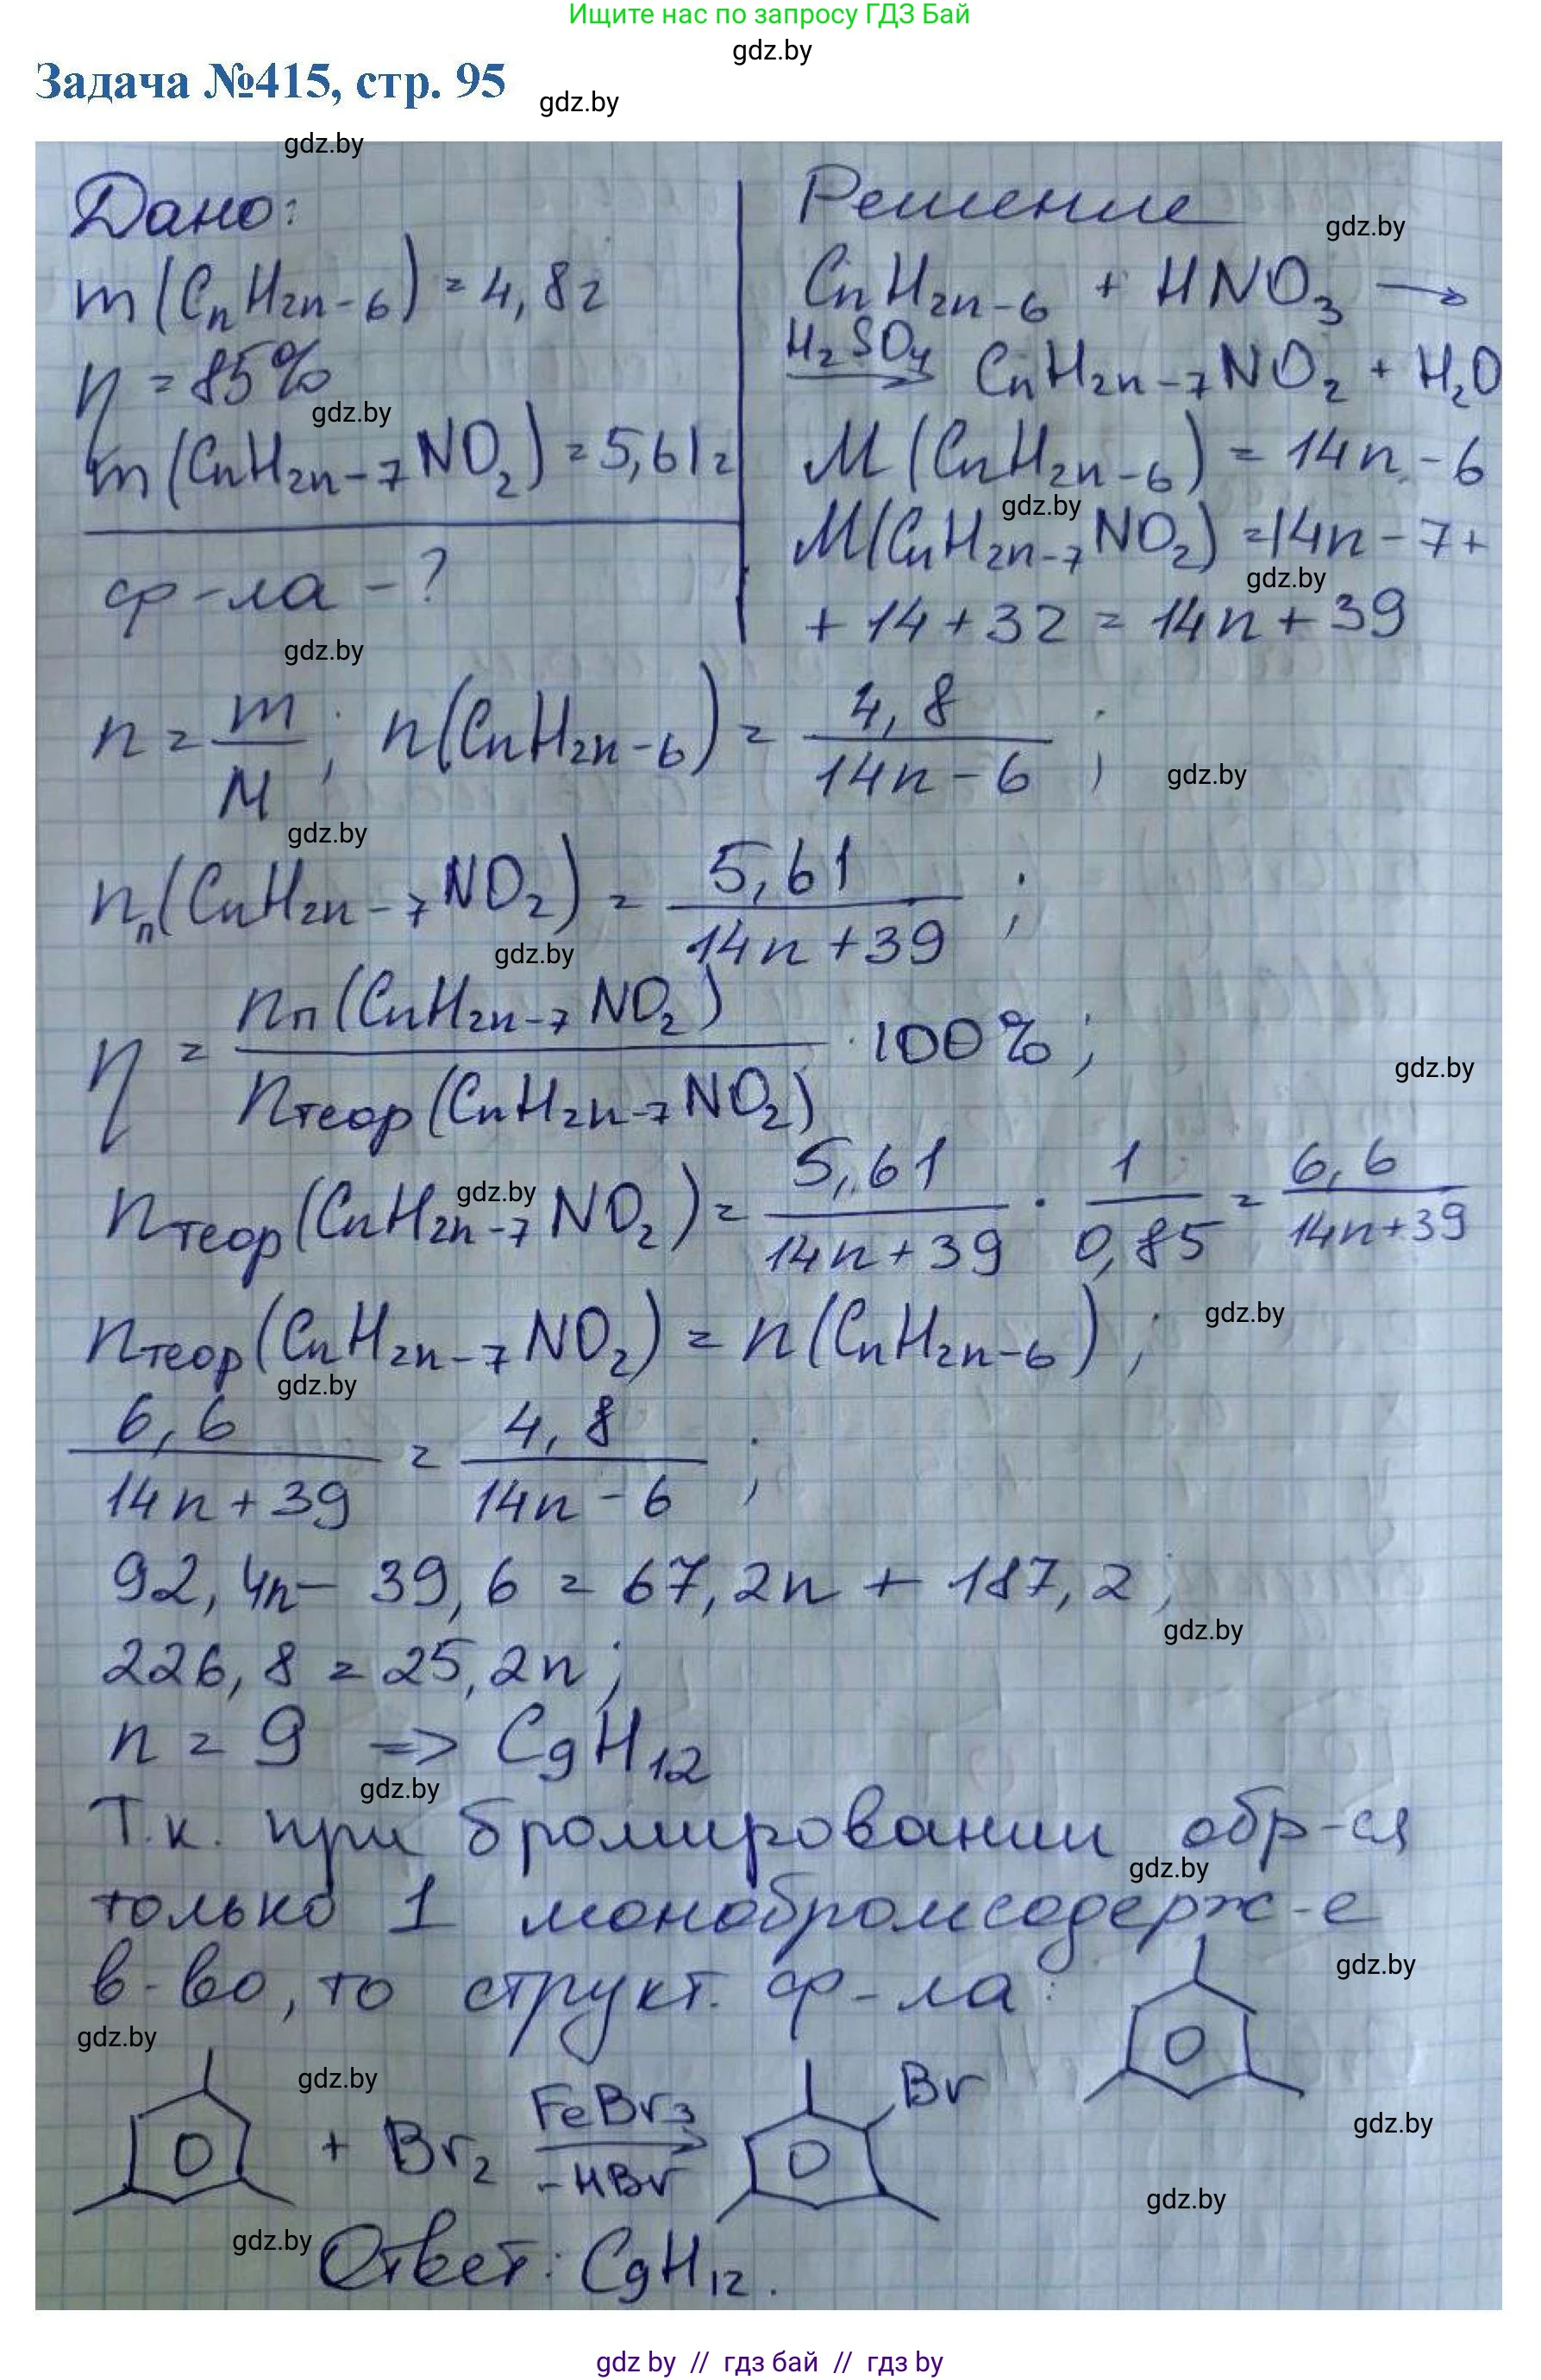 Ищите нас по запросу ГДЗ Бай
gdz.by
Задача №415, стр. 95
gdz.by
gdz.by
Дано:
m(CnH2n-6) = 4,8г
η = 85%
gdz.by
m(CnH2n-7NO2) = 5,61г
ф-ла - ?
gdz.by
Решение
gdz.by
CnH2n-6 + HNO3 →
H2SO4 → CnH2n-7NO2 + H2O
M(CnH2n-6) = 14n - 6
gdz.by
M(CnH2n-7NO2) = 14n - 7 +
gdz.by
+ 14 + 32 = 14n + 39
n = m/M; n(CnH2n-6) = 4,8/(14n - 6);
gdz.by
gdz.by
nп(CnH2n-7NO2) = 5,61/(14n + 39);
gdz.by
η = nп(CnH2n-7NO2)/nтеор(CnH2n-7NO2) · 100%;
gdz.by
nтеор(CnH2n-7NO2) = 5,61/(14n + 39) · 1/0,85 = 6,6/(14n + 39)
gdz.by
nтеор(CnH2n-7NO2) = n(CnH2n-6);
gdz.by
gdz.by
6,6/(14n + 39) = 4,8/(14n - 6);
92,4n - 39,6 = 67,2n + 187,2;
gdz.by
226,8 = 25,2n;
n = 9 => C9H12
gdz.by
Т.к. при бромировании обр-ся
gdz.by
только 1 монобромсодерж-е
в-во, то структ. ф-ла:
gdz.by
gdz.by
gdz.by
+ Br2 FeBr3 → -HBr Br
gdz.by
gdz.by
gdz.by
Ответ: C9H12.
gdz by // гдз бай // гдз by